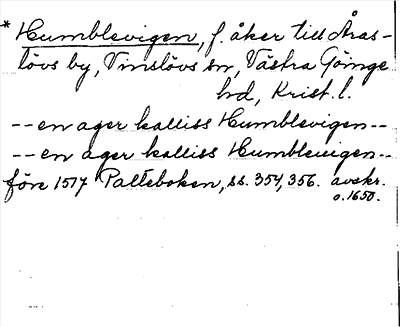 * Humblevigen, f. åker till Åras-
lövs by, Vinslövs sn, Västra Göinge
hd, Krist. l.
-- en ager kalliss Humblevigen --
-- en ager kalliss Humblevigen --
före 1517 Palteboken, ss. 354, 356. avskr.
o. 1650.